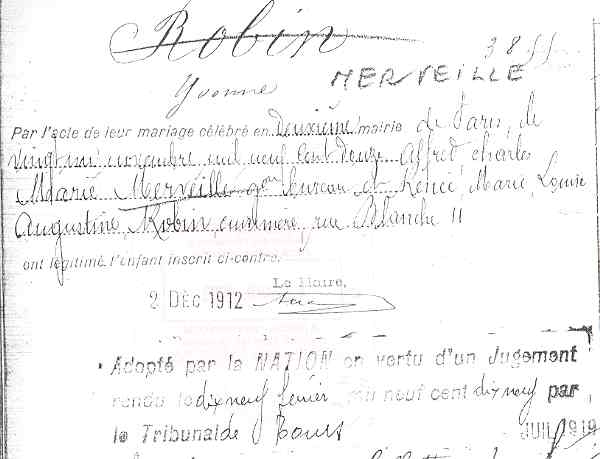 Robin
3855
Yvonne MERVEILLE
Par l'acte de leur mariage célébré en deuxième mairie de Paris, le
vingt un novembre mil neuf cent douze Alfred Charles
Marie Merveille, gon bureau et Renée, Marie, Louise
Augustine Robin, cuisinière, rue Blanche 11
ont légitimé l'enfant inscrit ci-contre.
Le Maire,
2 DÉC 1912
Adopté par la NATION en vertu d'un Jugement
rendu le dix neuf février mil neuf cent dix neuf par
le Tribunal de Tours
JUIL 1919